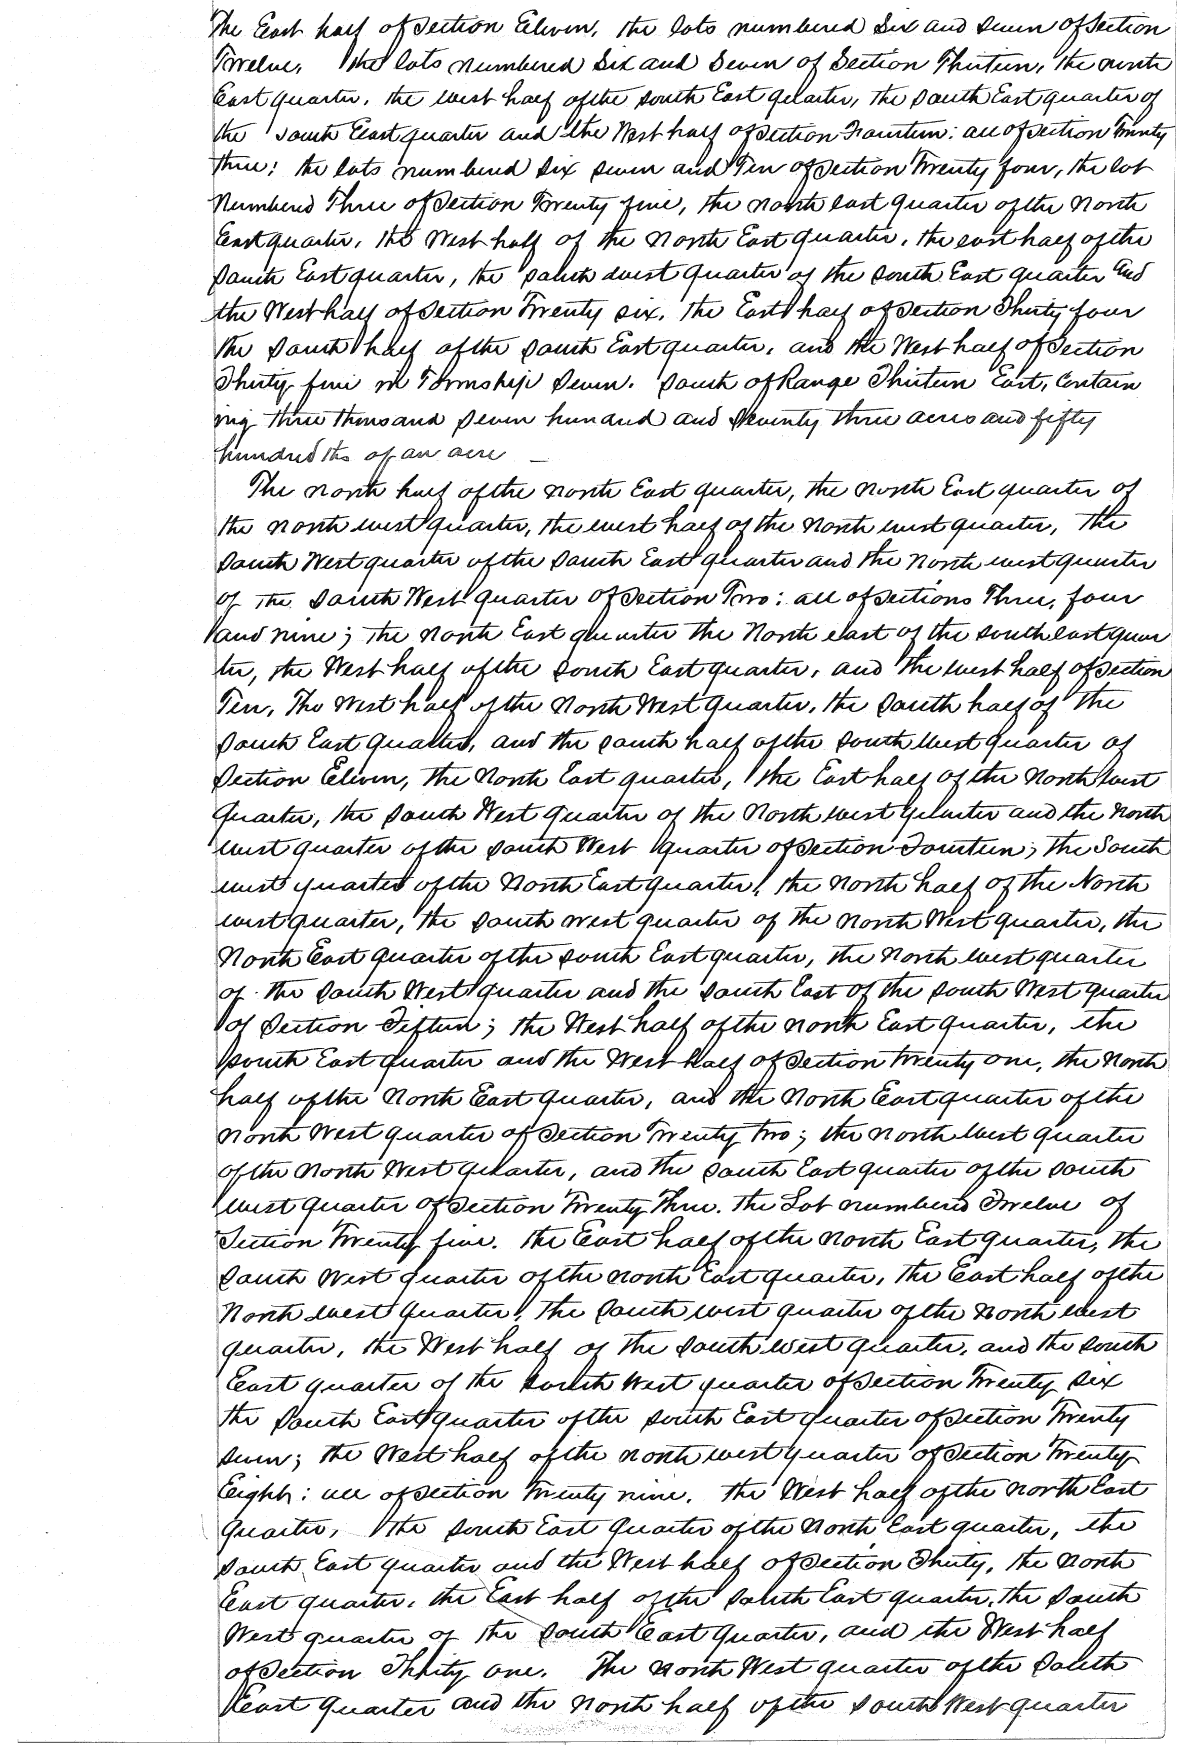 The East half of Section Eleven, the lots numbered Six and Seven of Section
Twelve, the lots numbered Six and Seven of Section Thirteen, the north
East quarter, the west half of the South East quarter, the South East quarter of
the South East quarter and the West half of Section Fourteen: all of Section Twenty
three; the lots numbered Six seven and Ten of Section Twenty four, the lot
Numbered Three of Section Twenty five, the north east quarter of the North
East quarter, the West half of the North East quarter, the east half of the
South East quarter, the South West quarter of the South East quarter and
the West half of Section Twenty six, the East half of Section Thirty four
the South half of the South East quarter, and the West half of Section
Thirty five in Township Seven. South of Range Thirteen East, Contain
ing three thousand seven hundred and Seventy three acres and fifty
hundredths of an acre —
The North half of the North East quarter, the North East quarter of
the North west quarter, the west half of the North west quarter, the
South West quarter of the South East quarter and the North west quarter
of the South West quarter of Section Two: all of Sections Three, four
and nine; the North East quarter the North east of the south east quar
ter, the West half of the South East quarter, and the west half of Section
Ten, The West half of the North West quarter, the South half of the
South East quarter, and the south half of the South West quarter of
Section Eleven, the North East quarter, the East half of the North West
quarter, the South West quarter of the North West quarter and the North
west quarter of the South West quarter of Section Fourteen; the South
west quarter of the North East quarter, the North half of the North
west quarter, the South west quarter of the North West quarter, the
North East quarter of the South East quarter, the North west quarter
of the South West quarter and the South East of the South West quarter
of Section Fifteen; the West half of the North East quarter, the
South East quarter and the West half of Section twenty one, the North
half of the North East quarter, and the North East quarter of the
North West quarter of Section Twenty two; the North West quarter
of the North West quarter, and the South East quarter of the South
west quarter of Section Twenty Three. the Lot numbered Twelve of
Section Twenty five. the East half of the North East quarter, the
South West quarter of the North East quarter, the East half of the
North west quarter, the South west quarter of the North West
quarter, the West half of the South west quarter, and the South
East quarter of the South West quarter of Section Twenty six
the South East quarter of the South East quarter of Section Twenty
seven; the West half of the North west quarter of Section Twenty
Eight: all of Section Twenty nine. the West half of the North East
quarter, the South East quarter of the North East quarter, the
South East quarter and the West half of Section Thirty, the North
East quarter, the East half of the South East quarter, the South
West quarter of the South East quarter, and the West half
of Section Thirty one. The North West quarter of the South
East quarter and the North half of the South West quarter